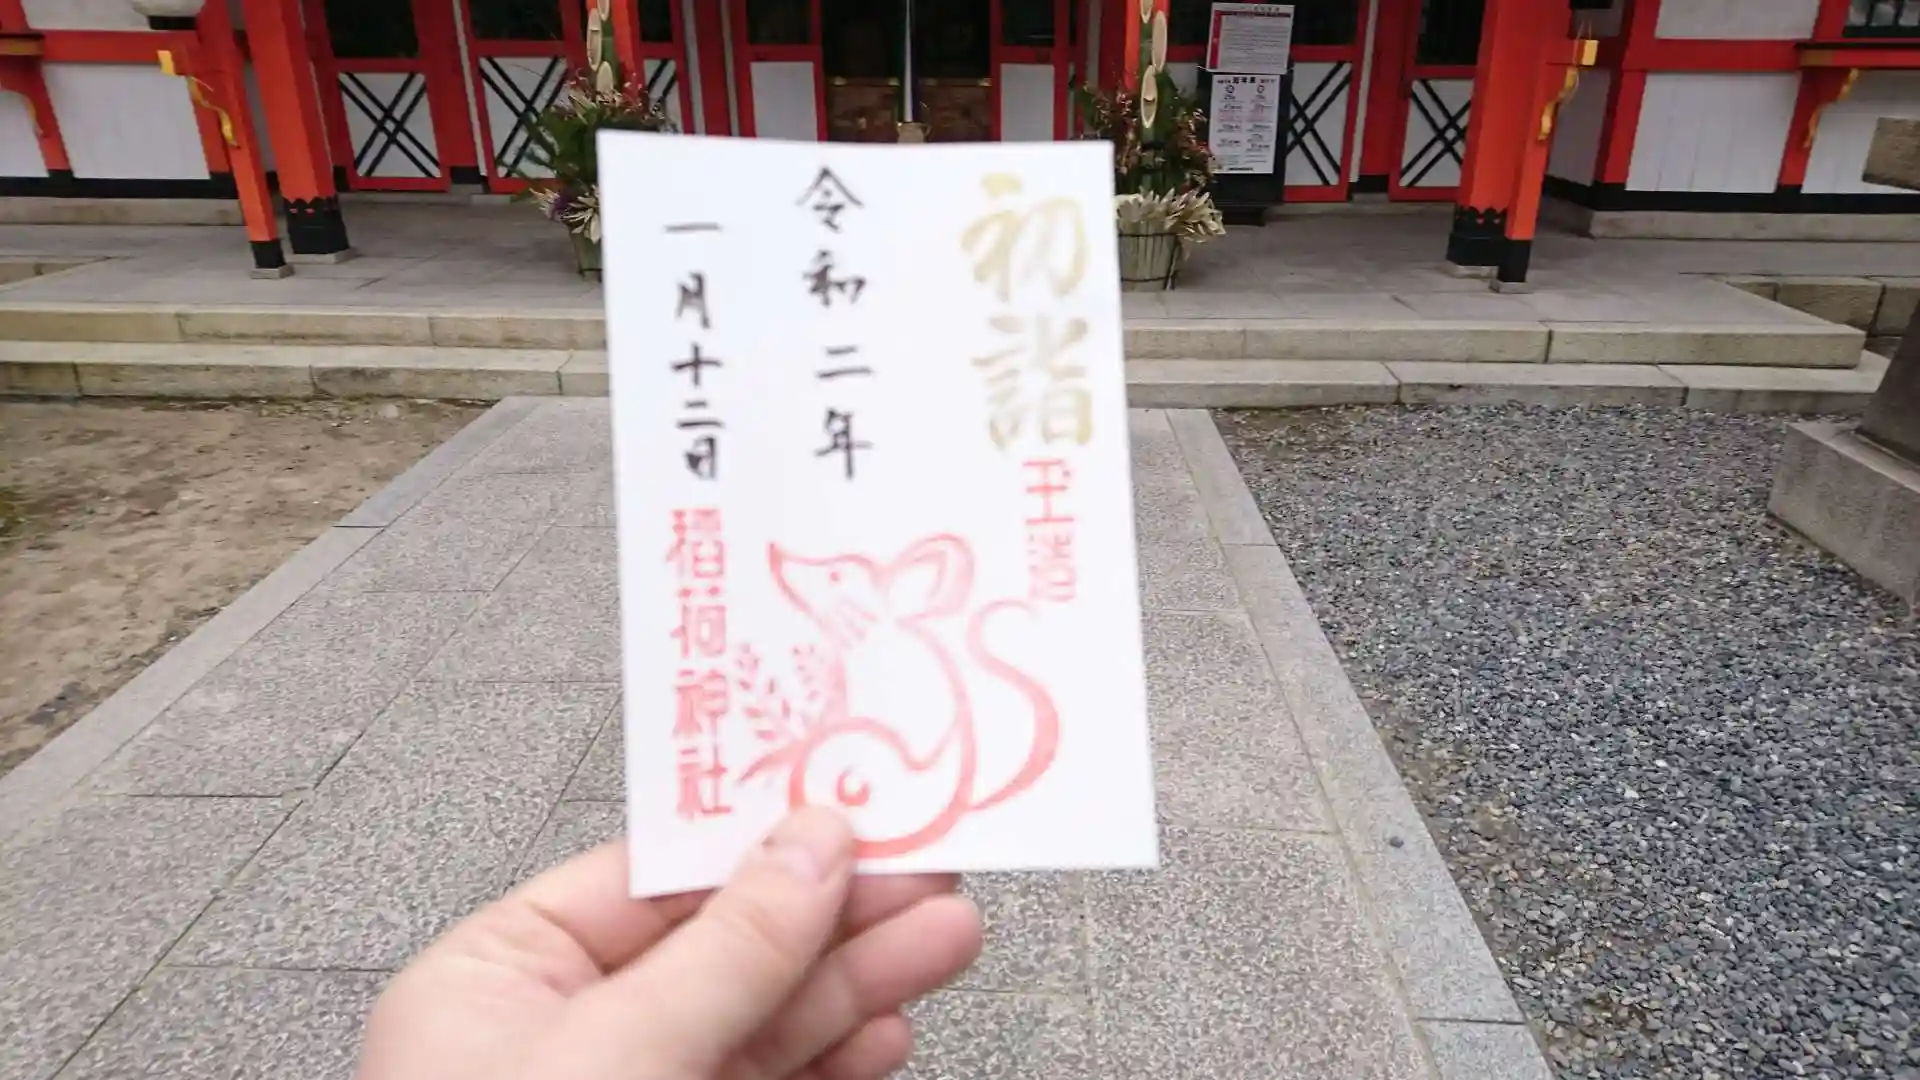 初詣
玉造
令和二年
一月十二日
稲荷神社